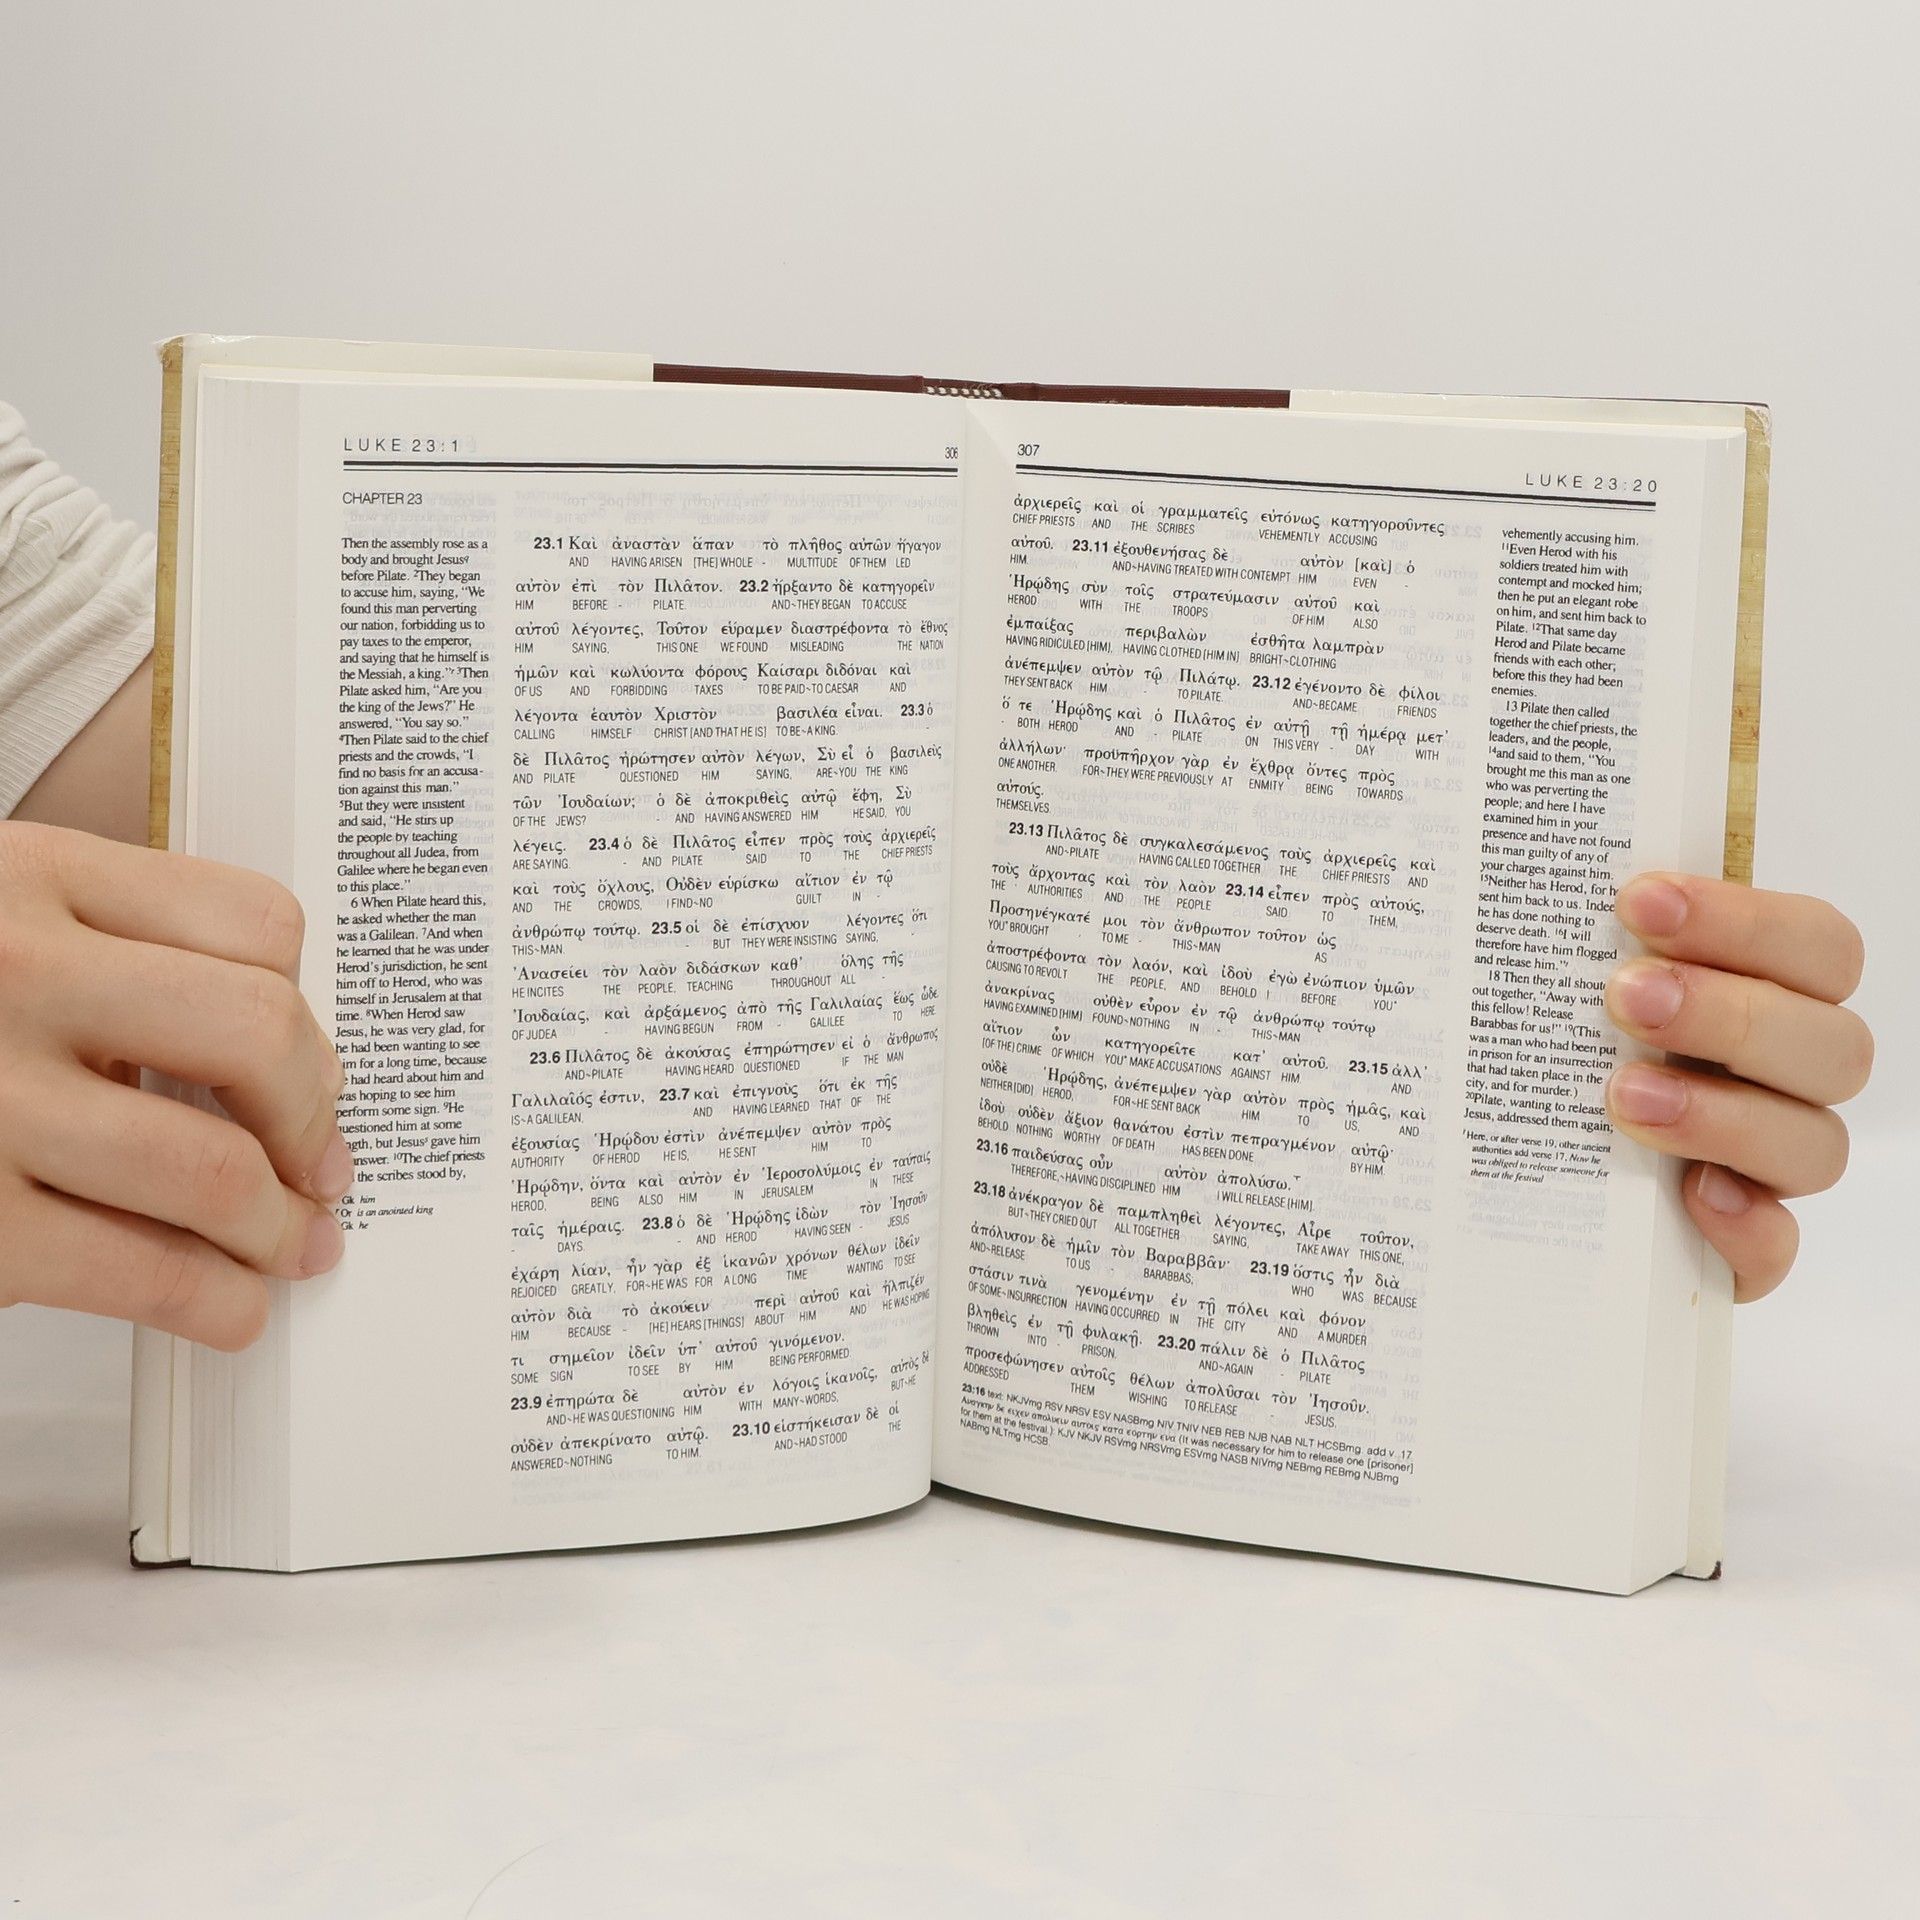 LUKE 23:1
306
CHAPTER 23
Then the assembly rose as a
body and brought Jesusq
before Pilate. 2They began
to accuse him, saying, “We
found this man perverting
our nation, forbidding us to
pay taxes to the emperor,
and saying that he himself is
the Messiah, a king.”r 3Then
Pilate asked him, “Are you
the king of the Jews?” He
answered, “You say so.”
4Then Pilate said to the chief
priests and the crowds, “I
find no basis for an accusa-
tion against this man.”
5But they were insistent
and said, “He stirs up
the people by teaching
throughout all Judea, from
Galilee where he began even
to this place.”
6 When Pilate heard this,
he asked whether the man
was a Galilean. 7And when
he learned that he was under
Herod’s jurisdiction, he sent
him off to Herod, who was
himself in Jerusalem at that
time. 8When Herod saw
Jesus, he was very glad, for
he had been wanting to see
him for a long time, because
had heard about him and
was hoping to see him
perform some sign. 9He
questioned him at some
length, but Jesuss gave him
answer. 10The chief priests
the scribes stood by,
Gk him
r Or is an anointed king
Gk he
23.1 Καὶ ἀναστὰν ἅπαν τὸ πλῆθος αὐτῶν ἤγαγον
AND HAVING ARISEN [THE] WHOLE - MULTITUDE OF THEM LED
αὐτὸν ἐπὶ τὸν Πιλᾶτον. 23.2 ἤρξαντο δὲ κατηγορεῖν
HIM BEFORE - PILATE. AND~THEY BEGAN TO ACCUSE
αὐτοῦ λέγοντες, Τοῦτον εὕραμεν διαστρέφοντα τὸ ἔθνος
HIM SAYING, THIS ONE WE FOUND MISLEADING THE NATION
ἡμῶν καὶ κωλύοντα φόρους Καίσαρι διδόναι καὶ
OF US AND FORBIDDING TAXES TO BE PAID~TO CAESAR AND
λέγοντα ἑαυτὸν Χριστὸν βασιλέα εἶναι. 23.3 ὁ
CALLING HIMSELF CHRIST [AND THAT HE IS] TO BE~A KING. -
δὲ Πιλᾶτος ἠρώτησεν αὐτὸν λέγων, Σὺ εἶ ὁ βασιλεὺς
AND PILATE QUESTIONED HIM SAYING, ARE~YOU THE KING
τῶν Ἰουδαίων; ὁ δὲ ἀποκριθεὶς αὐτῷ ἔφη, Σὺ
OF THE JEWS? AND HAVING ANSWERED HIM HE SAID, YOU
λέγεις. 23.4 ὁ δὲ Πιλᾶτος εἶπεν πρὸς τοὺς ἀρχιερεῖς
ARE SAYING. - AND PILATE SAID TO THE CHIEF PRIESTS
καὶ τοὺς ὄχλους, Οὐδὲν εὑρίσκω αἴτιον ἐν τῷ
AND THE CROWDS, I FIND~NO GUILT IN -
ἀνθρώπῳ τούτῳ. 23.5 οἱ δὲ ἐπίσχυον λέγοντες ὅτι
THIS~MAN. - BUT THEY WERE INSISTING SAYING, -
Ἀνασείει τὸν λαὸν διδάσκων καθ’ ὅλης τῆς
HE INCITES THE PEOPLE, TEACHING THROUGHOUT ALL -
Ἰουδαίας, καὶ ἀρξάμενος ἀπὸ τῆς Γαλιλαίας ἕως ὧδε.
OF JUDEA - HAVING BEGUN FROM - GALILEE TO HERE
23.6 Πιλᾶτος δὲ ἀκούσας ἐπηρώτησεν εἰ ὁ ἄνθρωπος
AND~PILATE HAVING HEARD QUESTIONED IF THE MAN
Γαλιλαῖός ἐστιν, 23.7 καὶ ἐπιγνοὺς ὅτι ἐκ τῆς
IS~A GALILEAN, AND HAVING LEARNED THAT OF THE
ἐξουσίας Ἡρῴδου ἐστὶν ἀνέπεμψεν αὐτὸν πρὸς
AUTHORITY OF HEROD HE IS, HE SENT HIM TO
Ἡρῴδην, ὄντα καὶ αὐτὸν ἐν Ἱεροσολύμοις ἐν ταύταις
HEROD, BEING ALSO HIM IN JERUSALEM IN THESE
ταῖς ἡμέραις. 23.8 ὁ δὲ Ἡρῴδης ἰδὼν τὸν Ἰησοῦν
- DAYS. - AND HEROD HAVING SEEN - JESUS
ἐχάρη λίαν, ἦν γὰρ ἐξ ἱκανῶν χρόνων θέλων ἰδεῖν
REJOICED GREATLY, FOR~HE WAS FOR A LONG TIME WANTING TO SEE
αὐτὸν διὰ τὸ ἀκούειν περὶ αὐτοῦ καὶ ἤλπιζέν
HIM BECAUSE - [HE] HEARS [THINGS] ABOUT HIM AND HE WAS HOPING
τι σημεῖον ἰδεῖν ὑπ’ αὐτοῦ γινόμενον.
SOME SIGN TO SEE BY HIM BEING PERFORMED.
23.9 ἐπηρώτα δὲ αὐτὸν ἐν λόγοις ἱκανοῖς, αὐτὸς δὲ
AND~HE WAS QUESTIONING HIM WITH MANY~WORDS, BUT~HE
οὐδὲν ἀπεκρίνατο αὐτῷ. 23.10 εἱστήκεισαν δὲ οἱ
ANSWERED~NOTHING TO HIM. AND~HAD STOOD THE
307
LUKE 23:20
ἀρχιερεῖς καὶ οἱ γραμματεῖς εὐτόνως κατηγοροῦντες
CHIEF PRIESTS AND THE SCRIBES VEHEMENTLY ACCUSING
αὐτοῦ. 23.11 ἐξουθενήσας δὲ αὐτὸν [καὶ] ὁ
HIM. AND~HAVING TREATED WITH CONTEMPT HIM EVEN -
Ἡρῴδης σὺν τοῖς στρατεύμασιν αὐτοῦ καὶ
HEROD WITH THE TROOPS OF HIM ALSO
ἐμπαίξας περιβαλὼν ἐσθῆτα λαμπρὰν
HAVING RIDICULED [HIM], HAVING CLOTHED [HIM IN] BRIGHT~CLOTHING
ἀνέπεμψεν αὐτὸν τῷ Πιλάτῳ. 23.12 ἐγένοντο δὲ φίλοι
THEY SENT BACK HIM - TO PILATE. AND~BECAME FRIENDS
ὅ τε Ἡρῴδης καὶ ὁ Πιλᾶτος ἐν αὐτῇ τῇ ἡμέρᾳ μετ’
- BOTH HEROD AND - PILATE ON THIS VERY - DAY WITH
ἀλλήλων· προϋπῆρχον γὰρ ἐν ἔχθρᾳ ὄντες πρὸς
ONE ANOTHER. FOR~THEY WERE PREVIOUSLY AT ENMITY BEING TOWARDS
αὐτούς.
THEMSELVES.
23.13 Πιλᾶτος δὲ συγκαλεσάμενος τοὺς ἀρχιερεῖς καὶ
AND~PILATE HAVING CALLED TOGETHER THE CHIEF PRIESTS AND
τοὺς ἄρχοντας καὶ τὸν λαὸν 23.14 εἶπεν πρὸς αὐτούς,
THE AUTHORITIES AND THE PEOPLE SAID TO THEM,
Προσηνέγκατέ μοι τὸν ἄνθρωπον τοῦτον ὡς
YOU* BROUGHT TO ME - THIS~MAN AS
ἀποστρέφοντα τὸν λαόν, καὶ ἰδοὺ ἐγὼ ἐνώπιον ὑμῶν
CAUSING TO REVOLT THE PEOPLE, AND BEHOLD I BEFORE YOU*
ἀνακρίνας οὐθὲν εὗρον ἐν τῷ ἀνθρώπῳ τούτῳ
HAVING EXAMINED [HIM] FOUND~NOTHING IN - THIS~MAN
αἴτιον ὧν κατηγορεῖτε κατ’ αὐτοῦ. 23.15 ἀλλ’
[OF THE] CRIME OF WHICH YOU* MAKE ACCUSATIONS AGAINST HIM AND
οὐδὲ Ἡρῴδης, ἀνέπεμψεν γὰρ αὐτὸν πρὸς ἡμᾶς, καὶ
NEITHER [DID] HEROD, FOR~HE SENT BACK HIM TO US, AND
ἰδοὺ οὐδὲν ἄξιον θανάτου ἐστὶν πεπραγμένον αὐτῷ·
BEHOLD NOTHING WORTHY OF DEATH HAS BEEN DONE BY HIM.
23.16 παιδεύσας οὖν αὐτὸν ἀπολύσω.⸆
THEREFORE,~HAVING DISCIPLINED HIM I WILL RELEASE [HIM].
23.18 ἀνέκραγον δὲ παμπληθεὶ λέγοντες, Αἶρε τοῦτον,
BUT~THEY CRIED OUT ALL TOGETHER SAYING, TAKE AWAY THIS ONE,
ἀπόλυσον δὲ ἡμῖν τὸν Βαραββᾶν· 23.19 ὅστις ἦν διὰ
AND~RELEASE TO US - BARABBAS; WHO WAS BECAUSE
στάσιν τινὰ γενομένην ἐν τῇ πόλει καὶ φόνον
OF SOME~INSURRECTION HAVING OCCURRED IN THE CITY AND A MURDER
βληθεὶς ἐν τῇ φυλακῇ. 23.20 πάλιν δὲ ὁ Πιλᾶτος
THROWN INTO - PRISON. AND~AGAIN - PILATE
προσεφώνησεν αὐτοῖς θέλων ἀπολῦσαι τὸν Ἰησοῦν.
ADDRESSED THEM WISHING TO RELEASE - JESUS,
23:16 text: NKJVmg RSV NRSV ESV NASBmg NIV TNIV NEB REB NJB NAB NLT HCSBmg. add v. 17
Αναγκην δε ειχεν απολυειν αυτοις κατα εορτην ενα (It was necessary for him to release one [prisoner]
for them at the festival.): KJV NKJV RSVmg NRSVmg ESVmg NASB NIVmg NEBmg REBmg NJBmg
NABmg NLTmg HCSB.
vehemently accusing him.
11Even Herod with his
soldiers treated him with
contempt and mocked him;
then he put an elegant robe
on him, and sent him back to
Pilate. 12That same day
Herod and Pilate became
friends with each other;
before this they had been
enemies.
13 Pilate then called
together the chief priests, the
leaders, and the people,
14and said to them, “You
brought me this man as one
who was perverting the
people; and here I have
examined him in your
presence and have not found
this man guilty of any of
your charges against him.
15Neither has Herod, for he
sent him back to us. Indeed
he has done nothing to
deserve death. 16I will
therefore have him flogged
and release him.”t
18 Then they all shouted
out together, “Away with
this fellow! Release
Barabbas for us!” 19(This
was a man who had been put
in prison for an insurrection
that had taken place in the
city, and for murder.)
20Pilate, wanting to release
Jesus, addressed them again;
t Here, or after verse 19, other ancient
authorities add verse 17, Now he
was obliged to release someone for
them at the festival